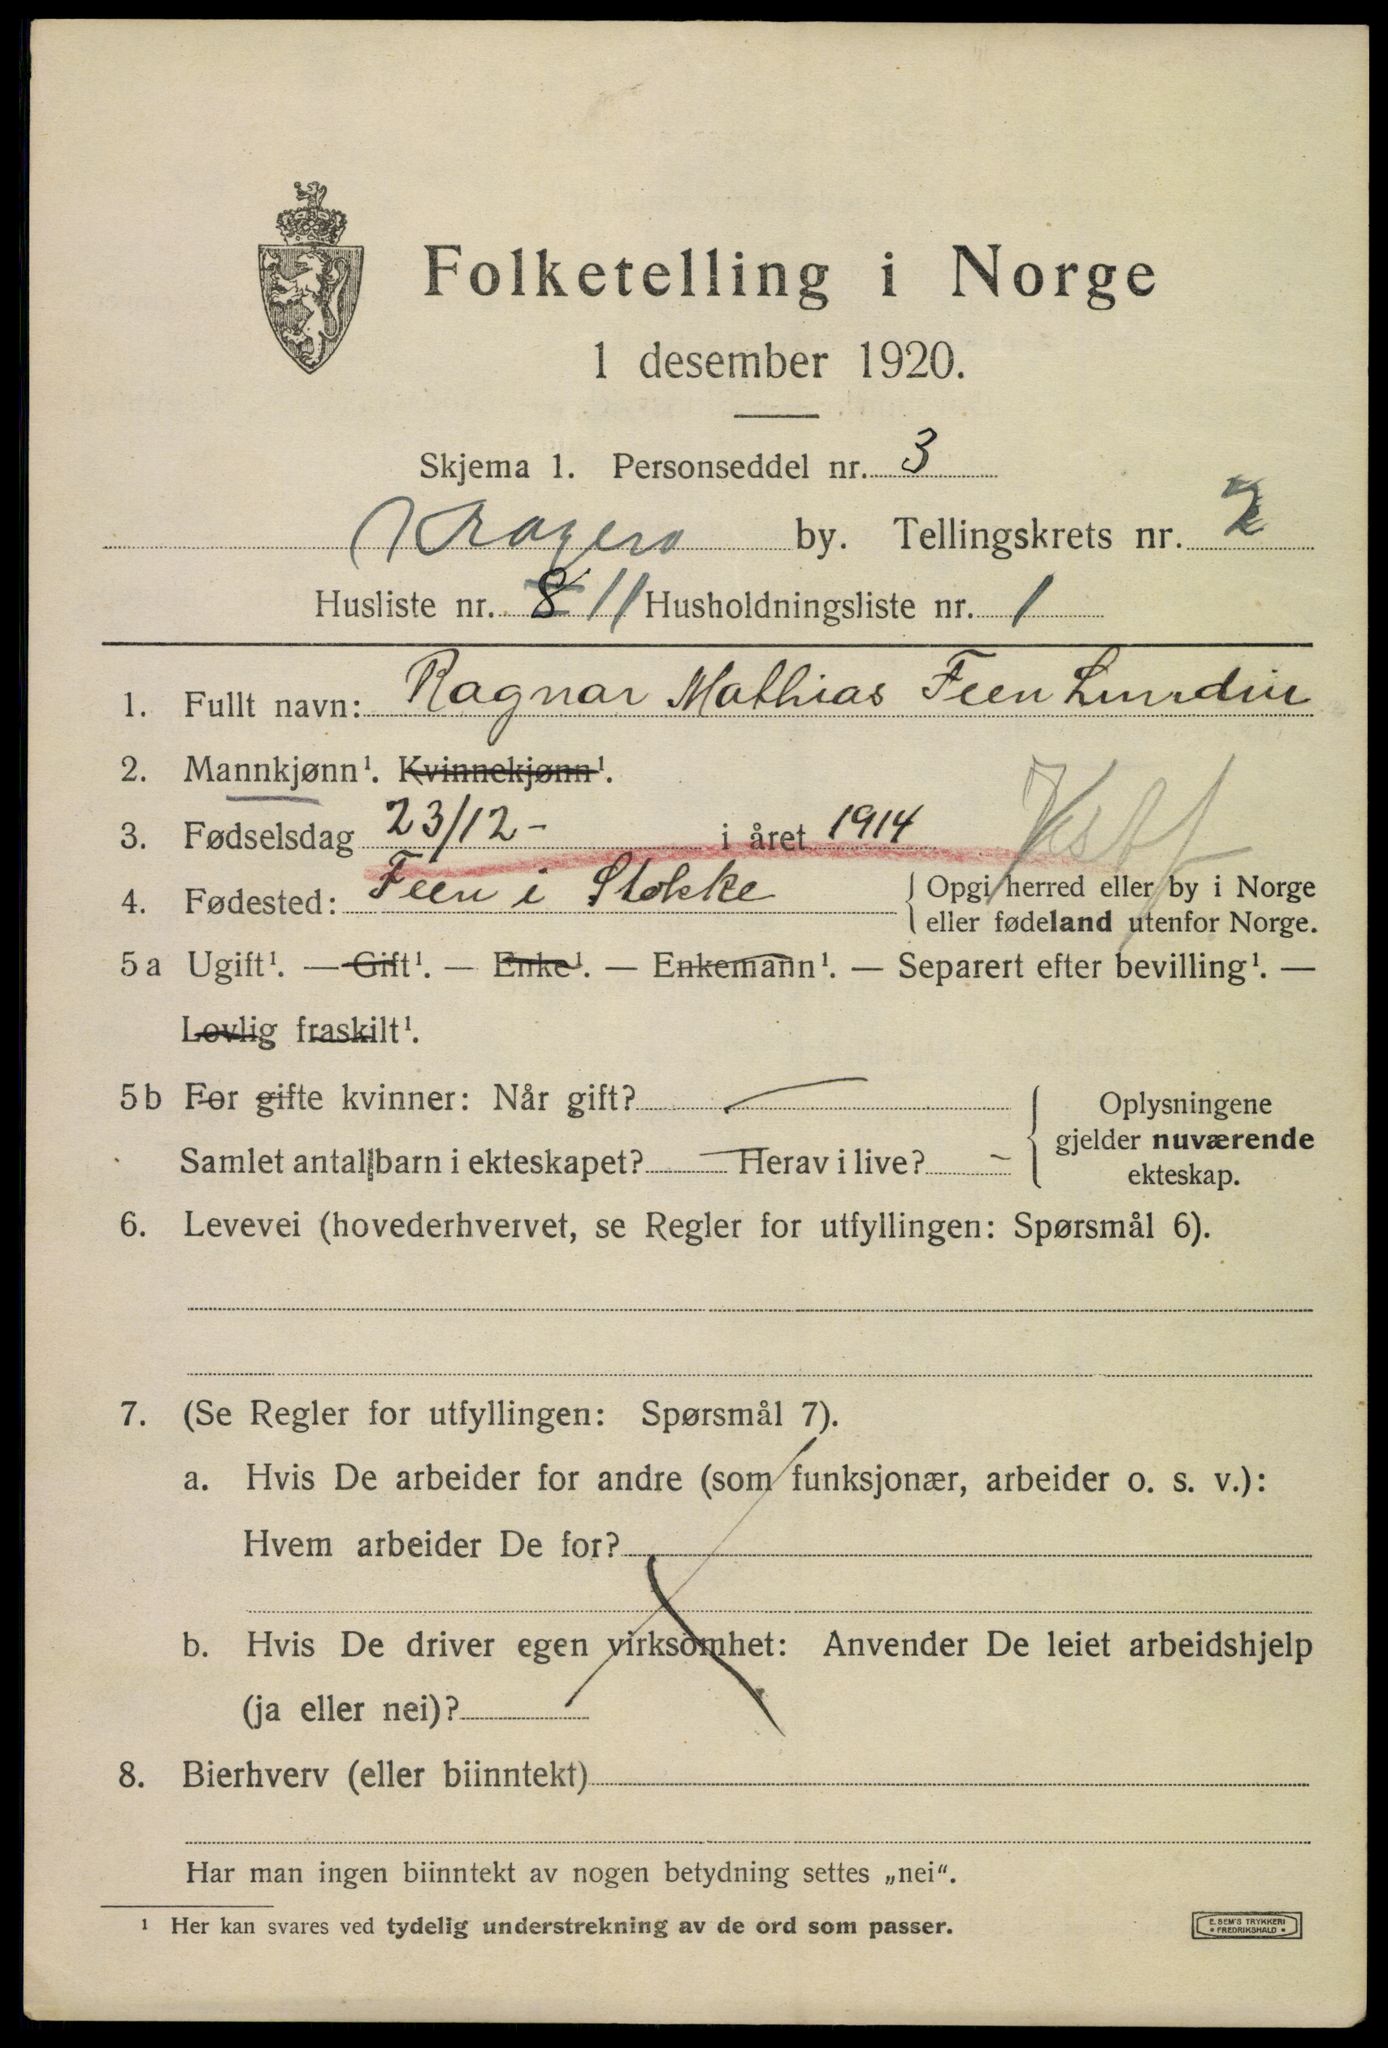 Folketelling i Norge
1 desember 1920.
Skjema 1. Personseddel nr. 3
Kragerø by. Tellingskrets nr. 2
Husliste nr. 8 11 Husholdningsliste nr. 1
1. Fullt navn: Ragnar Mathias Feen Lundin
2. Mannkjønn¹. Kvinnekjønn¹.
3. Fødselsdag 23/12- i året 1914
Vestf
4. Fødested: Feen i Stokke { Opgi herred eller by i Norge
eller fødeland utenfor Norge.
5 a Ugift¹. — Gift¹. — Enke¹. — Enkemann¹. — Separert efter bevilling¹. —
Lovlig fraskilt¹.
5 b For gifte kvinner: Når gift? — { Oplysningene
gjelder nuværende
Samlet antal barn i ekteskapet? — Herav i live? –
ekteskap.
6. Levevei (hovederhvervet, se Regler for utfyllingen: Spørsmål 6).
7. (Se Regler for utfyllingen: Spørsmål 7).
a. Hvis De arbeider for andre (som funksjonær, arbeider o. s. v.):
Hvem arbeider De for?
b. Hvis De driver egen virksomhet: Anvender De leiet arbeidshjelp
(ja eller nei)?
8. Bierhverv (eller biinntekt)
Har man ingen biinntekt av nogen betydning settes „nei“.
¹ Her kan svares ved tydelig understrekning av de ord som passer.
E. SEM'S TRYKKERI
• FREDRIKSHALD •